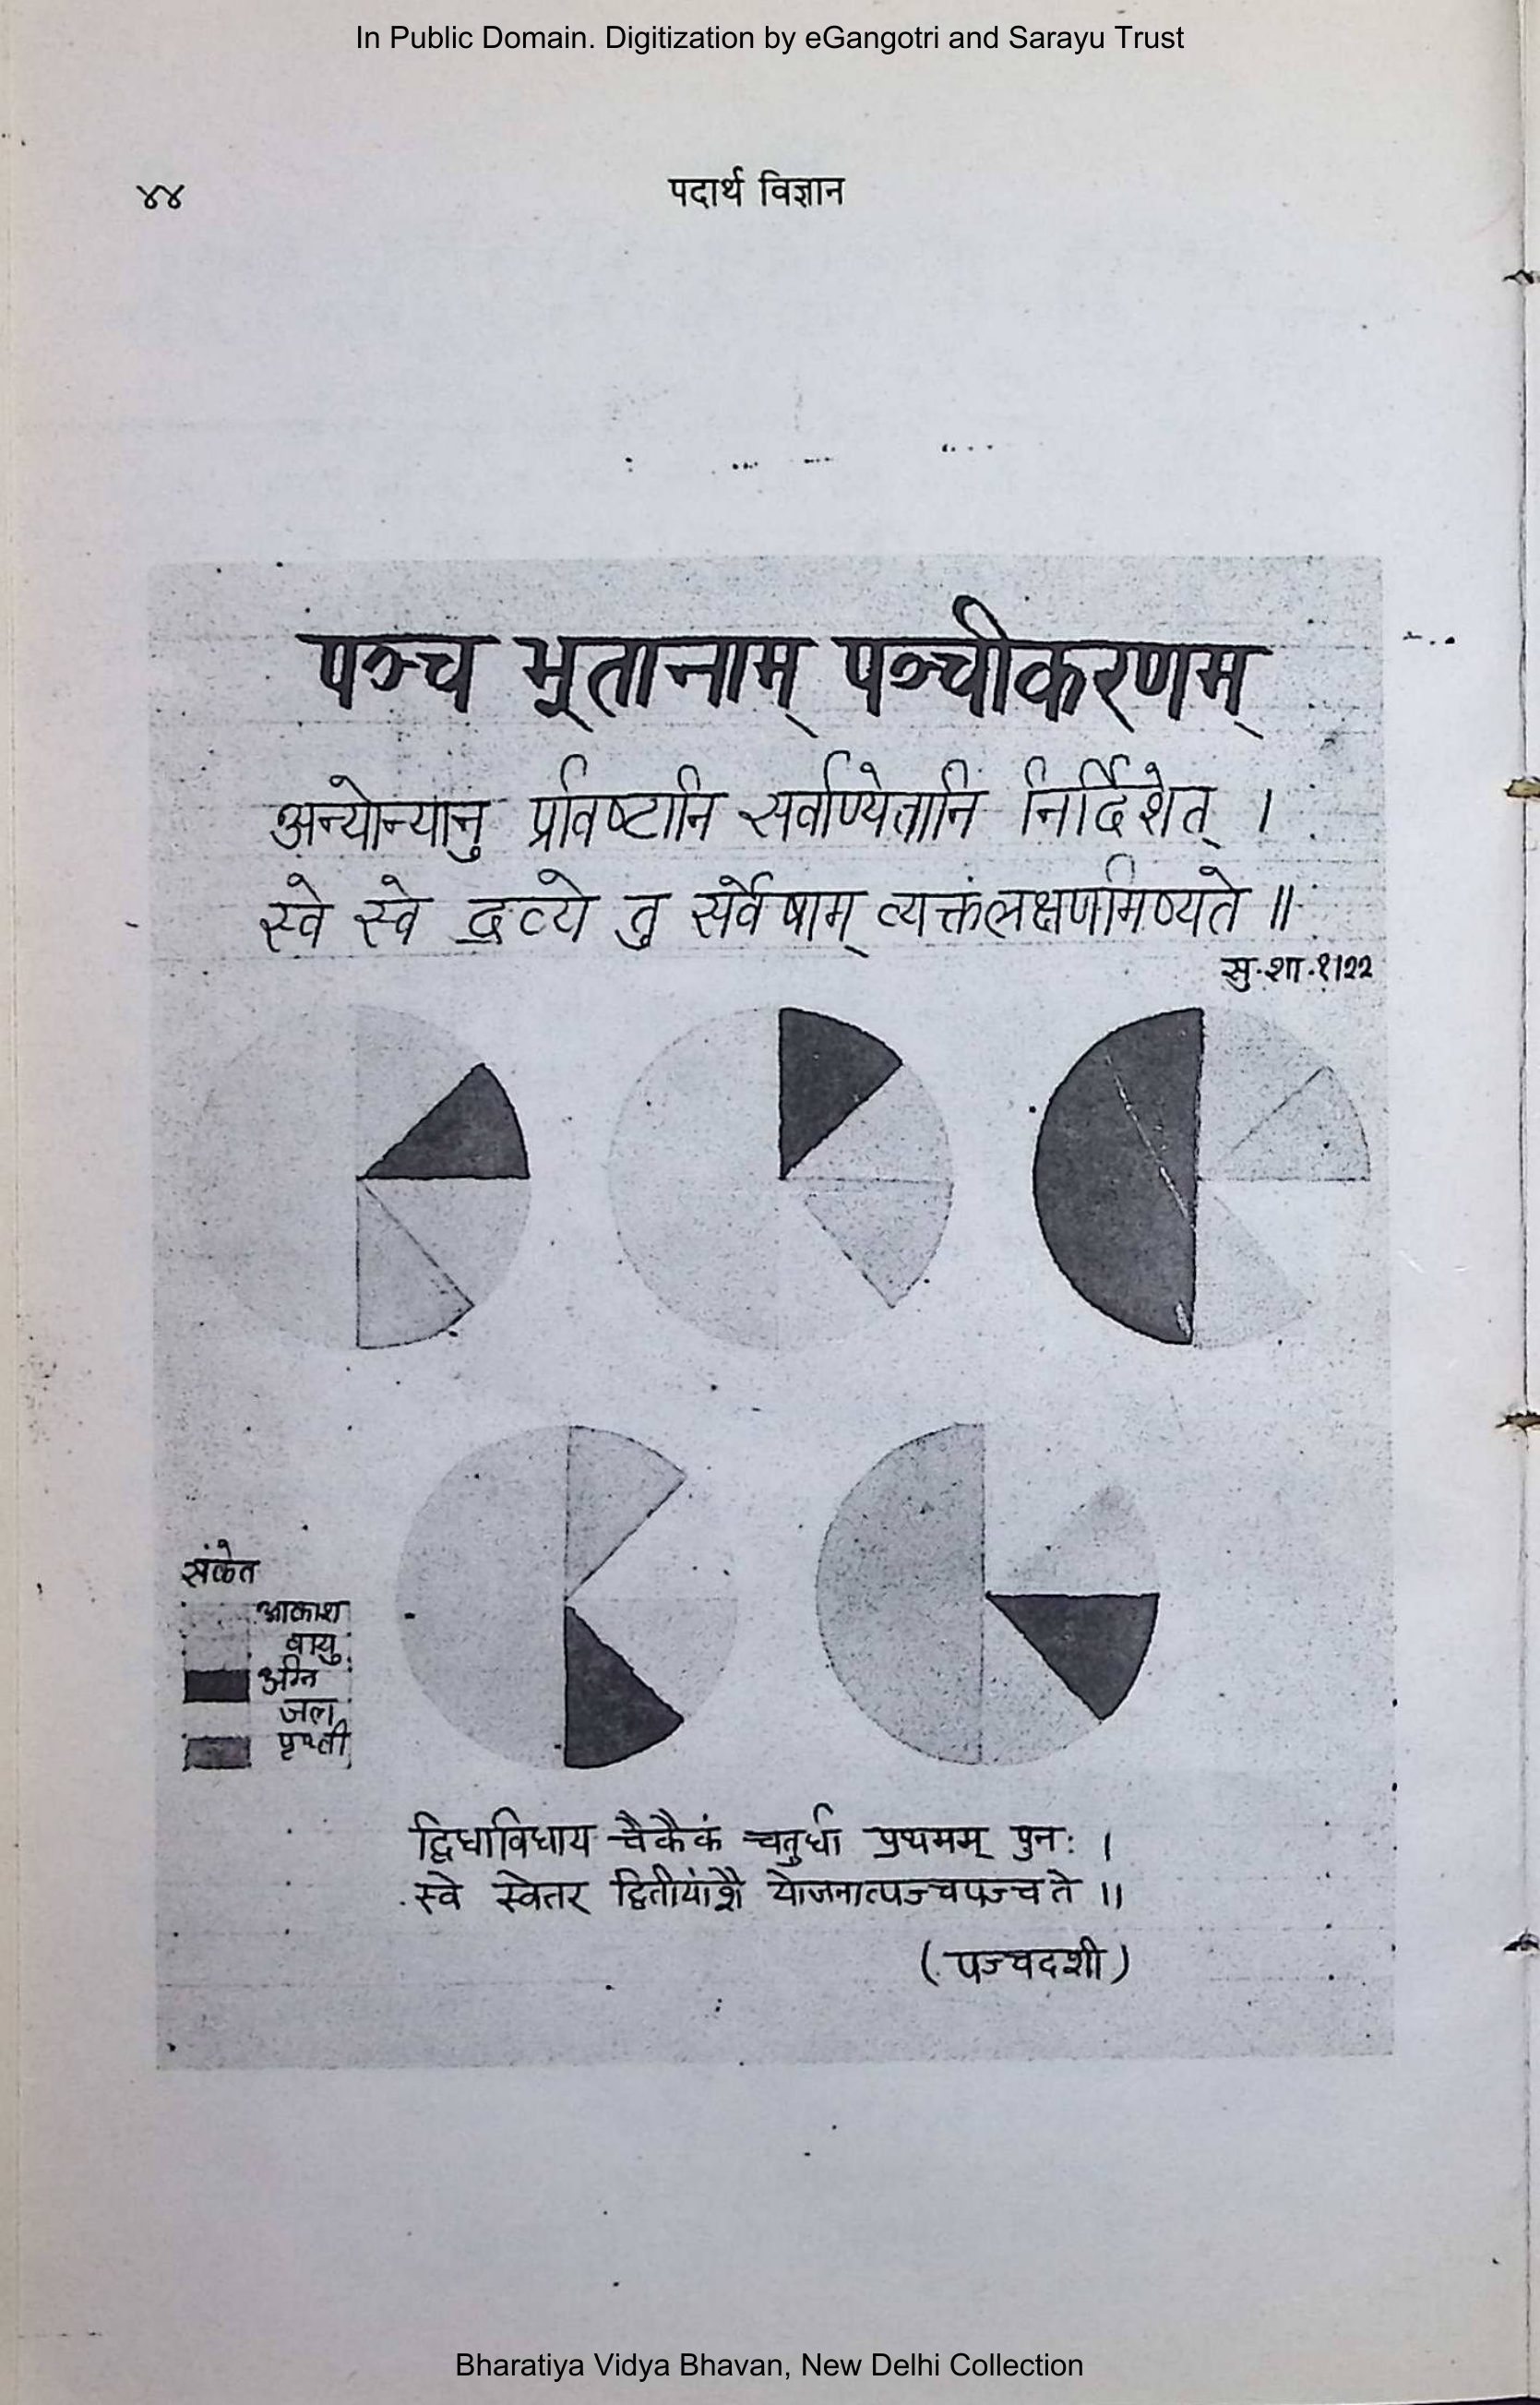 In Public Domain. Digitization by eGangotri and Sarayu Trust
४४
पदार्थ विज्ञान
पञ्च भूतानाम् पञ्चीकरणम्
अन्योन्यानु प्रविष्टानि सर्वाण्येतानि निर्दिशेत् ।
स्वे स्वे द्रव्ये तु सर्वेषाम् व्यक्तंलक्षणमिष्यते ॥
सु.शा.१।२२
संकेत
आकाश
वायु
अग्नि
जल
पृथ्वी
द्विधाविधाय चैकैकं चतुर्धा प्रथमम् पुनः ।
स्वे स्वेतर द्वितीयांशै योजनात्पञ्चपञ्च ते ॥
(पञ्चदशी)
Bharatiya Vidya Bhavan, New Delhi Collection